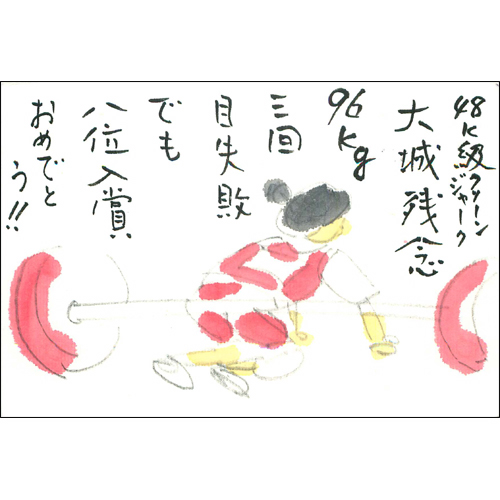 48K級クリーン
ジャーク
大城残念
96kg
三回
目失敗
でも
八位入賞
おめでと
う!!